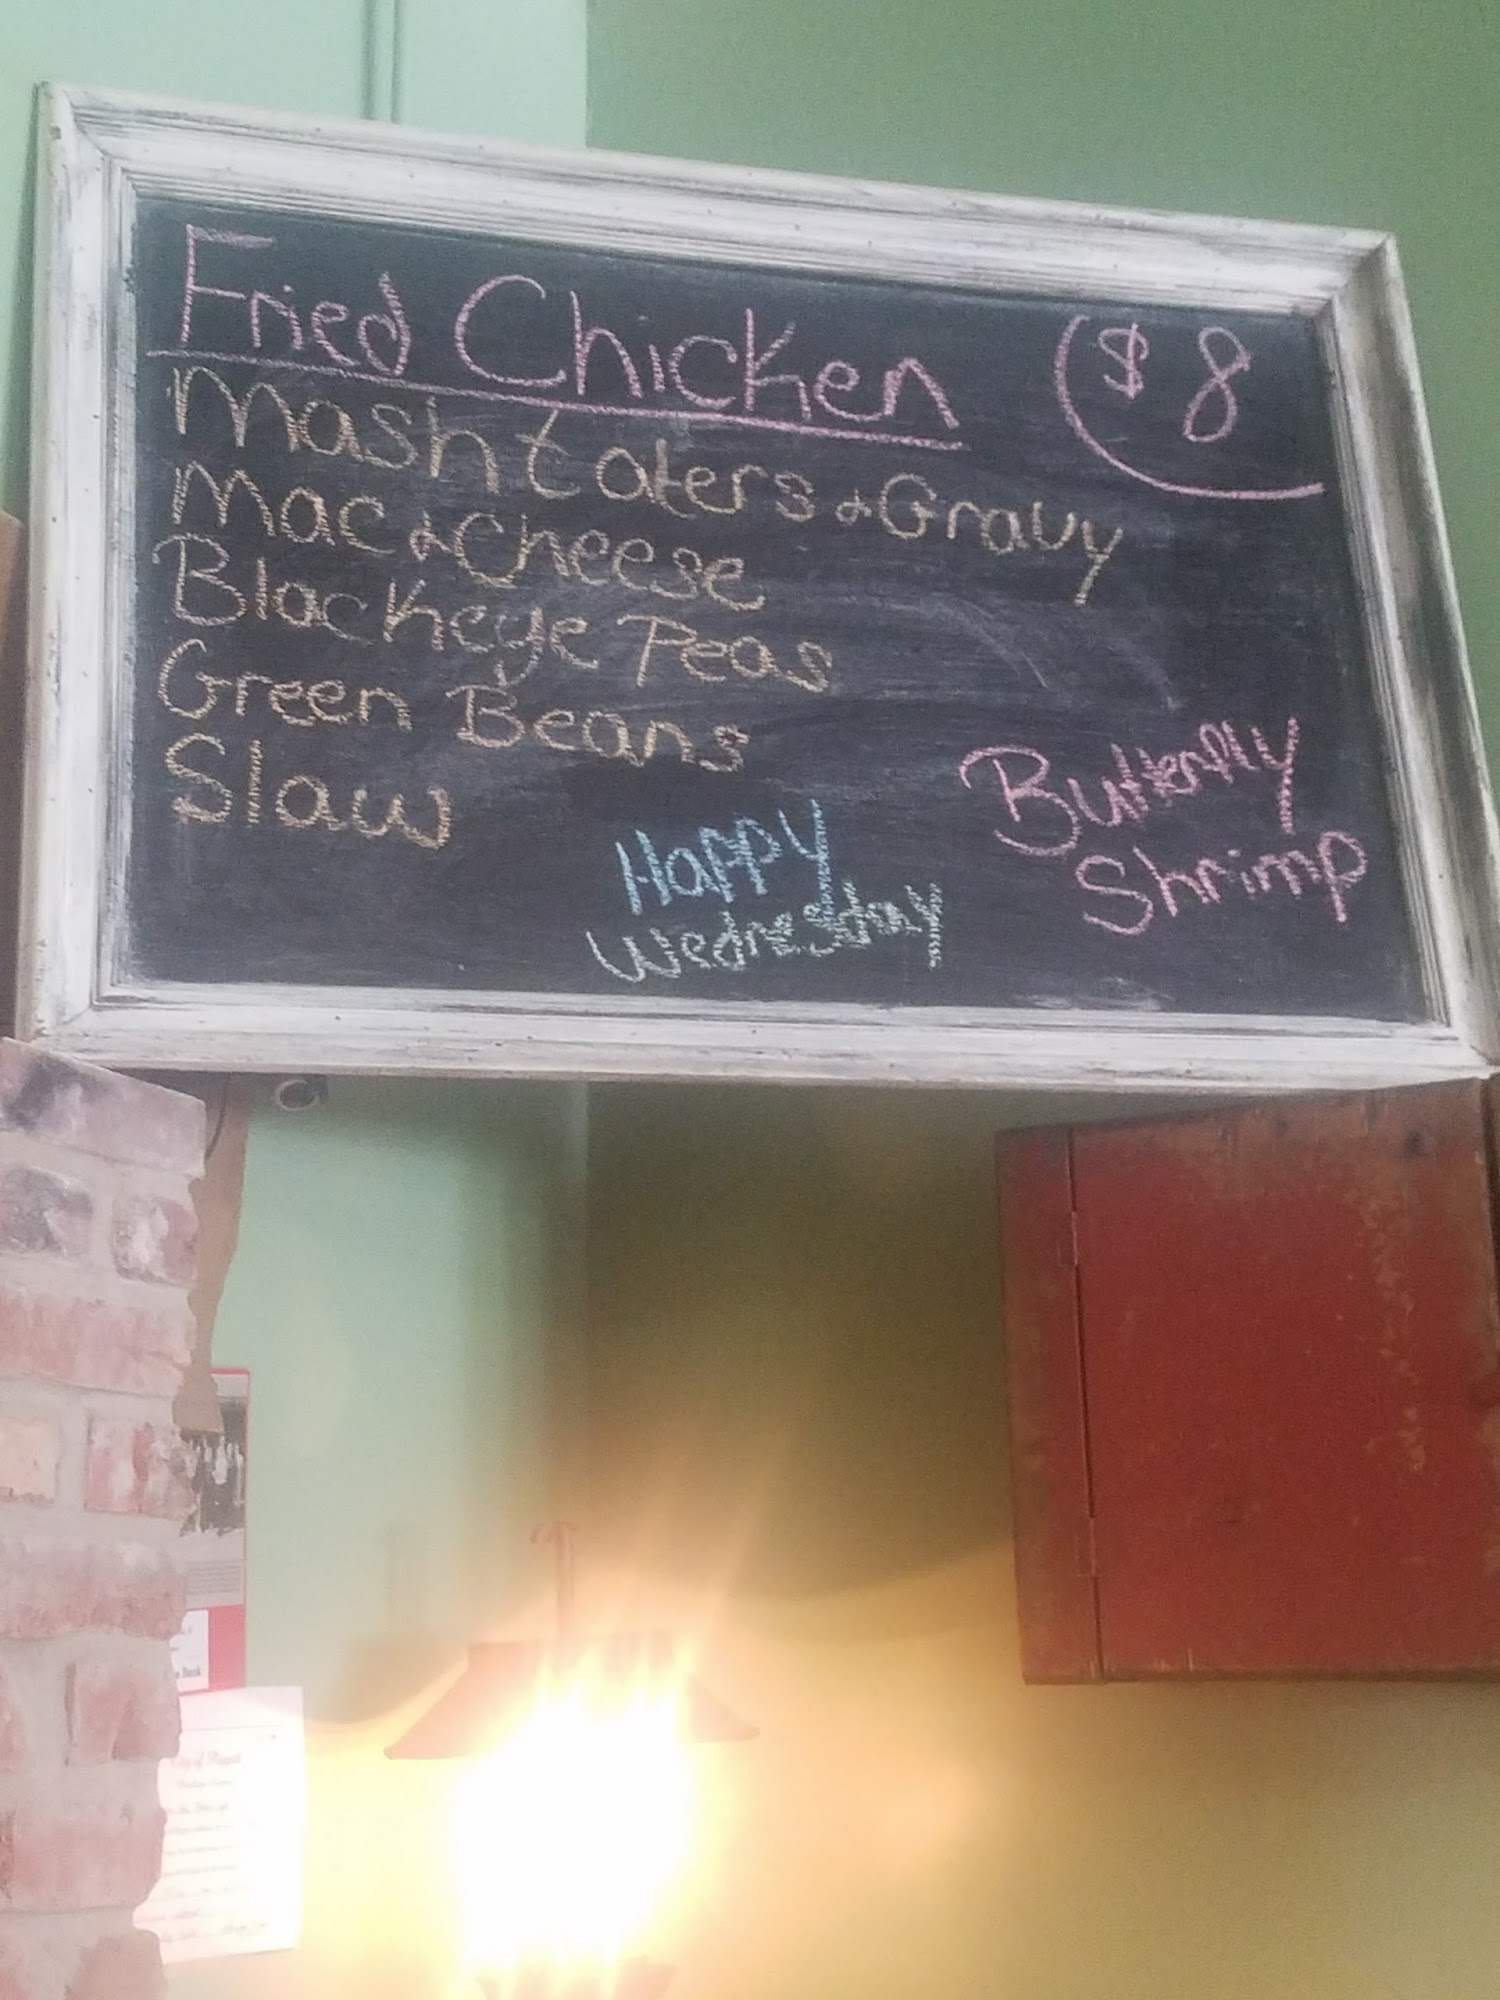 Fried Chicken ($8
Mash taters & Gravy
Mac & Cheese
Blackeye Peas
Green Beans
Slaw
Happy
Wednesday
Butterfly
Shrimp
Bank